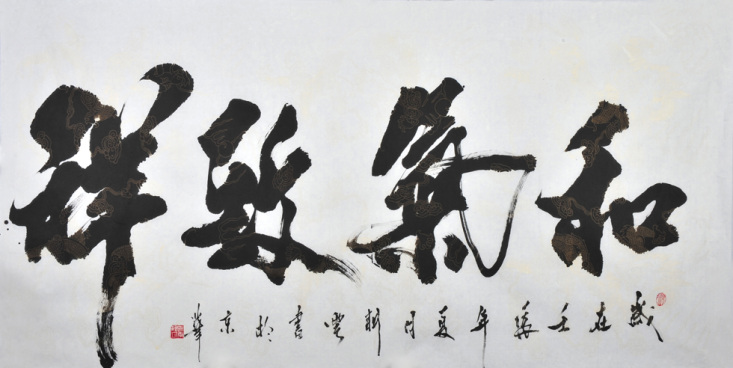 和氣致祥
歲在壬辰年夏月 書於京華